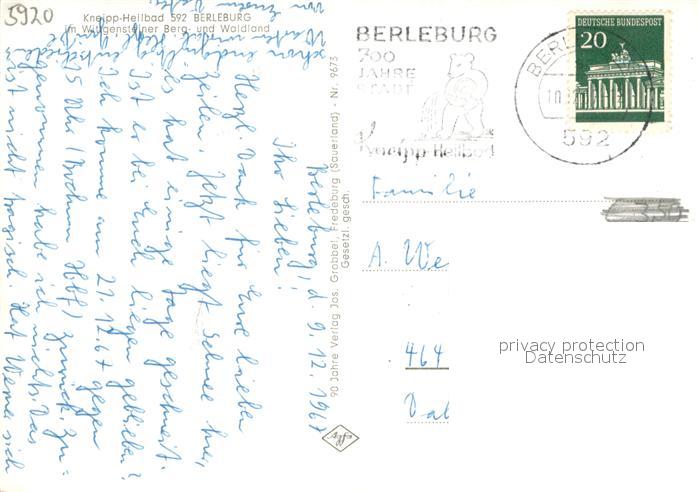 5920
Kneipp-Heilbad 592 BERLEBURG
im Wittgensteiner Berg- und Waldland
Berleburg, d. 9.12.1967
Ihr Lieben!
Herzl. Dank für Eure lieben
Zeilen. Jetzt liegt Schnee hier,
es hat einige Tage geschneit.
Ist er bei Euch liegen geblieben?
Ich komme am 21.12.67 gegen
15 Uhr (Bochum Hbf) zurück. Zu-
genommen habe ich nichts. Das
ist nicht tragisch. Hat Werner sich
schon
90 Jahre Verlag Jos. Grobbel, Fredeburg (Sauerland) · Nr. 9673
Gesetzl. gesch.
Agfa
BERLEBURG
700
JAHRE
STADT
Kneipp-Heilbad
BERL
10.
592
DEUTSCHE BUNDESPOST
20
Familie
A. We
464
3,50
privacy protection
Datenschutz